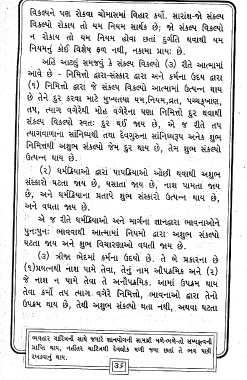 વિકલ્પને પણ રોકવા ચોમાસમાં વિહાર કર્યો. સારાંશ-જો સંકલ્પ
વિકલ્પો રોકાય તો યમ નિયમ સાર્થક છે; જો સંકલ્પ વિકલ્પો
ન રોકાય તો યમ નિયમ હોવા છતાં દુર્ગતિ થવાથી યમ
નિયમનું કોઈ વિશેષ ફળ નથી, નકામા પ્રાયઃ છે.
અહિં આટલું સમજવું કે સંકલ્પ વિકલ્પો (૩) રીતે આત્મામાં
આવે છે - નિમિત્તો દ્વારા-સંસ્કાર દ્વારા અને કર્મના ઉદય દ્વારા
(૧) નિમિત્તો દ્વારા જે સંકલ્પ વિકલ્પો આત્મામાં ઉત્પન્ન થાય
છે તેને દૂર કરવા માટે મુખ્યતયા યમ,નિયમ,વ્રત, પચ્ચક્ખાણ,
તપ, ત્યાગ વગેરેથી મોહ વગેરેના ઘણા નિમિત્તો દૂર થવાથી
સંકલ્પ વિકલ્પો સ્વતઃ દૂર થઈ જાય છે, એ જ રીતે તપ
ત્યાગવાળાના સાંનિધ્યથી તથા દેવગુરુના સાંનિધ્યરૂપ અનેક શુભ
નિમિત્તથી અશુભ સંકલ્પો જેમ દૂર થાય છે, તેમ શુભ સંકલ્પો
ઉત્પન્ન થાય છે.
(૨) ધર્મક્રિયાઓ દ્વારા પાપક્રિયાઓ ઓછી થવાથી અશુભ
સંસ્કારો ઘટતા જાય છે, ઘસાતા જાય છે, નાશ પામતા જાય છે,
અને ધર્મક્રિયાના પ્રતાપે શુભ સંસ્કારો ઉત્પન્ન થાય છે,
અને વધતા જાય છે.
એ જ રીતે ધર્મક્રિયાઓ અને માર્ગના જ્ઞાનદ્વારા ભાવનાઓને
પુનઃપુનઃ ભાવવાથી આત્મામાં નિયમો દ્વારા અશુભ સંકલ્પો
ઘટતા જાય અને શુભ વિચારણાઓ વધતી જાય છે.
(૩) ત્રીજા ભેદમાં કર્મના ઉદયો છે. તે બે પ્રકારના છે
(૧)પ્રયત્નથી નાશ પામે તેવા, તેનું નામ ઔપક્રમિક અને (૨)
જે નાશ ન પામે તેવા તે અનૌપક્રમિક. આમાં ઉપક્રમ થાય
તેવા કર્મો તપ ત્યાગ વગેરે નિમિત્તો, ભાવનાઓ દ્વારા તેનો
ઉપક્રમ થાય છે, તેથી અશુભ સંકલ્પો થતા નથી, અથવા ઘટતા
વ્યવહાર ચારિત્રની સાથે જ્યારે જ્ઞાનયોગની સામગ્રી મળે-મળે-તો સમ્યક્ત્વની
પ્રાપ્તિ થાય, નહીંતર ચારિત્રથી દેવલોક મળી જવા છતાં તે ભવ પછી
રખડવાનું થાય.
૩૬